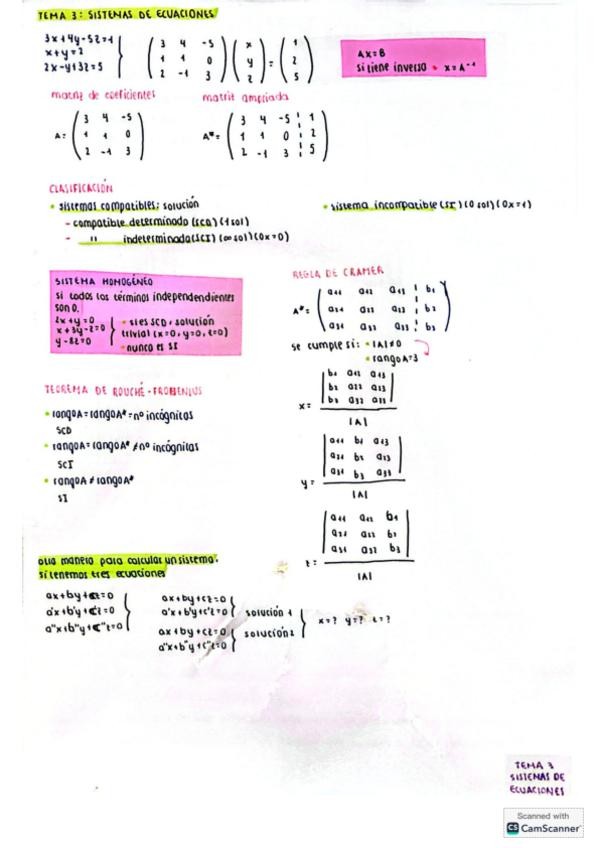 TEMA 3: SISTEMAS DE ECUACIONES
3x+4y-5z=1
x+y=2
2x-y+3z=5
( 3 4 -5 ) ( x ) ( 1 )
( 1 1 0 ) ( y ) = ( 2 )
( 2 -1 3 ) ( z ) ( 5 )
Ax=B
si tiene inversa → x=A⁻¹
matriz de coeficientes
A= ( 3 4 -5 )
( 1 1 0 )
( 2 -1 3 )
matriz ampliada
A*= ( 3 4 -5 ¦ 1 )
( 1 1 0 ¦ 2 )
( 2 -1 3 ¦ 5 )
CLASIFICACIÓN
• sistemas compatibles; solución
- compatible determinado (SCD) (1 sol)
- " indeterminada (SCI) (∞ sol) (0x=0)
• sistema incompatible (SI) (0 sol) (0x=1)
SISTEMA HOMOGÉNEO
si todos los términos independendientes
son 0.
2x+y=0
x+3y-z=0
y-8z=0
• si es SCD, solución
trivial (x=0, y=0, z=0)
• nunca es SI
TEOREMA DE ROUCHÉ-FROBENIUS
• rangoA=rangoA*=nº incógnitas
SCD
• rangoA=rangoA* ≠ nº incógnitas
SCI
• rangoA ≠ rangoA*
SI
REGLA DE CRAMER
A*= ( a11 a12 a13 ¦ b1 )
( a21 a22 a23 ¦ b2 )
( a31 a32 a33 ¦ b3 )
se cumple si: • |A|≠0
• rangoA=3
x= | b1 a12 a13 |
| b2 a22 a23 |
| b3 a32 a33 |
|A|
y= | a11 b1 a13 |
| a21 b2 a23 |
| a31 b3 a33 |
|A|
z= | a11 a12 b1 |
| a21 a22 b2 |
| a31 a32 b3 |
|A|
otra manera para calcular un sistema.
si tenemos tres ecuaciones
ax+by+cz=0
a'x+b'y+c'z=0
a"x+b"y+c"z=0
ax+by+cz=0
a'x+b'y+c'z=0
solución 1
ax+by+cz=0
a"x+b"y+c"z=0
solución 2
x=? y=? z=?
TEMA 3
SISTEMAS DE
ECUACIONES
Scanned with
CS CamScanner